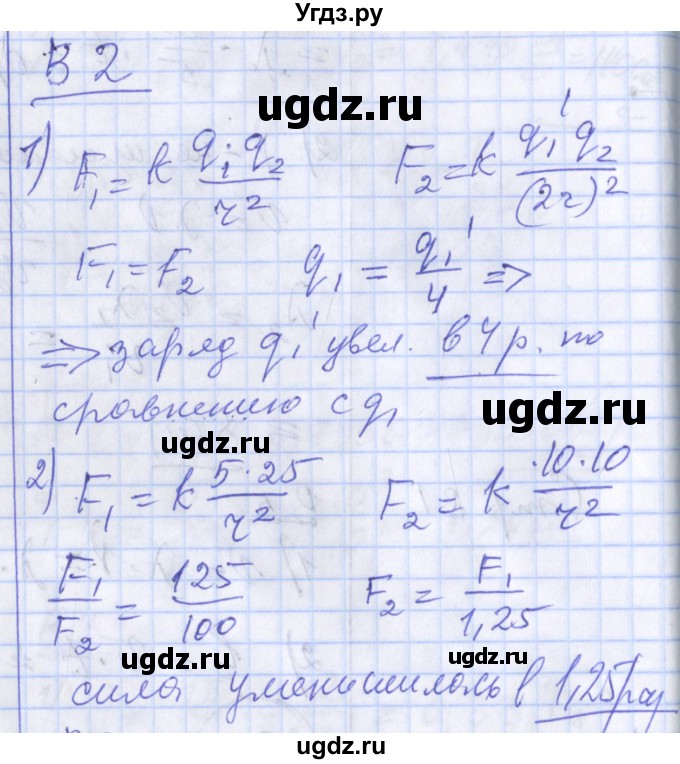 Угдз.ру
В 2
ugdz.ru
1) F₁ = k q₁·q₂/r² F₂ = k q₁' q₂/(2r)²
F₁ = F₂ q₁ = q₁'/4 =>
=> заряд q₁' увел. в 4 р. по
сравнению с q₁
ugdz.ru
ugdz.ru
2) F₁ = k 5·25/r² F₂ = k ·10·10/r²
F₁/F₂ = 125/100 F₂ = F₁/1,25
ugdz.ru
ugdz.ru
сила уменьшилась в 1,25 раз
ugdz.ru